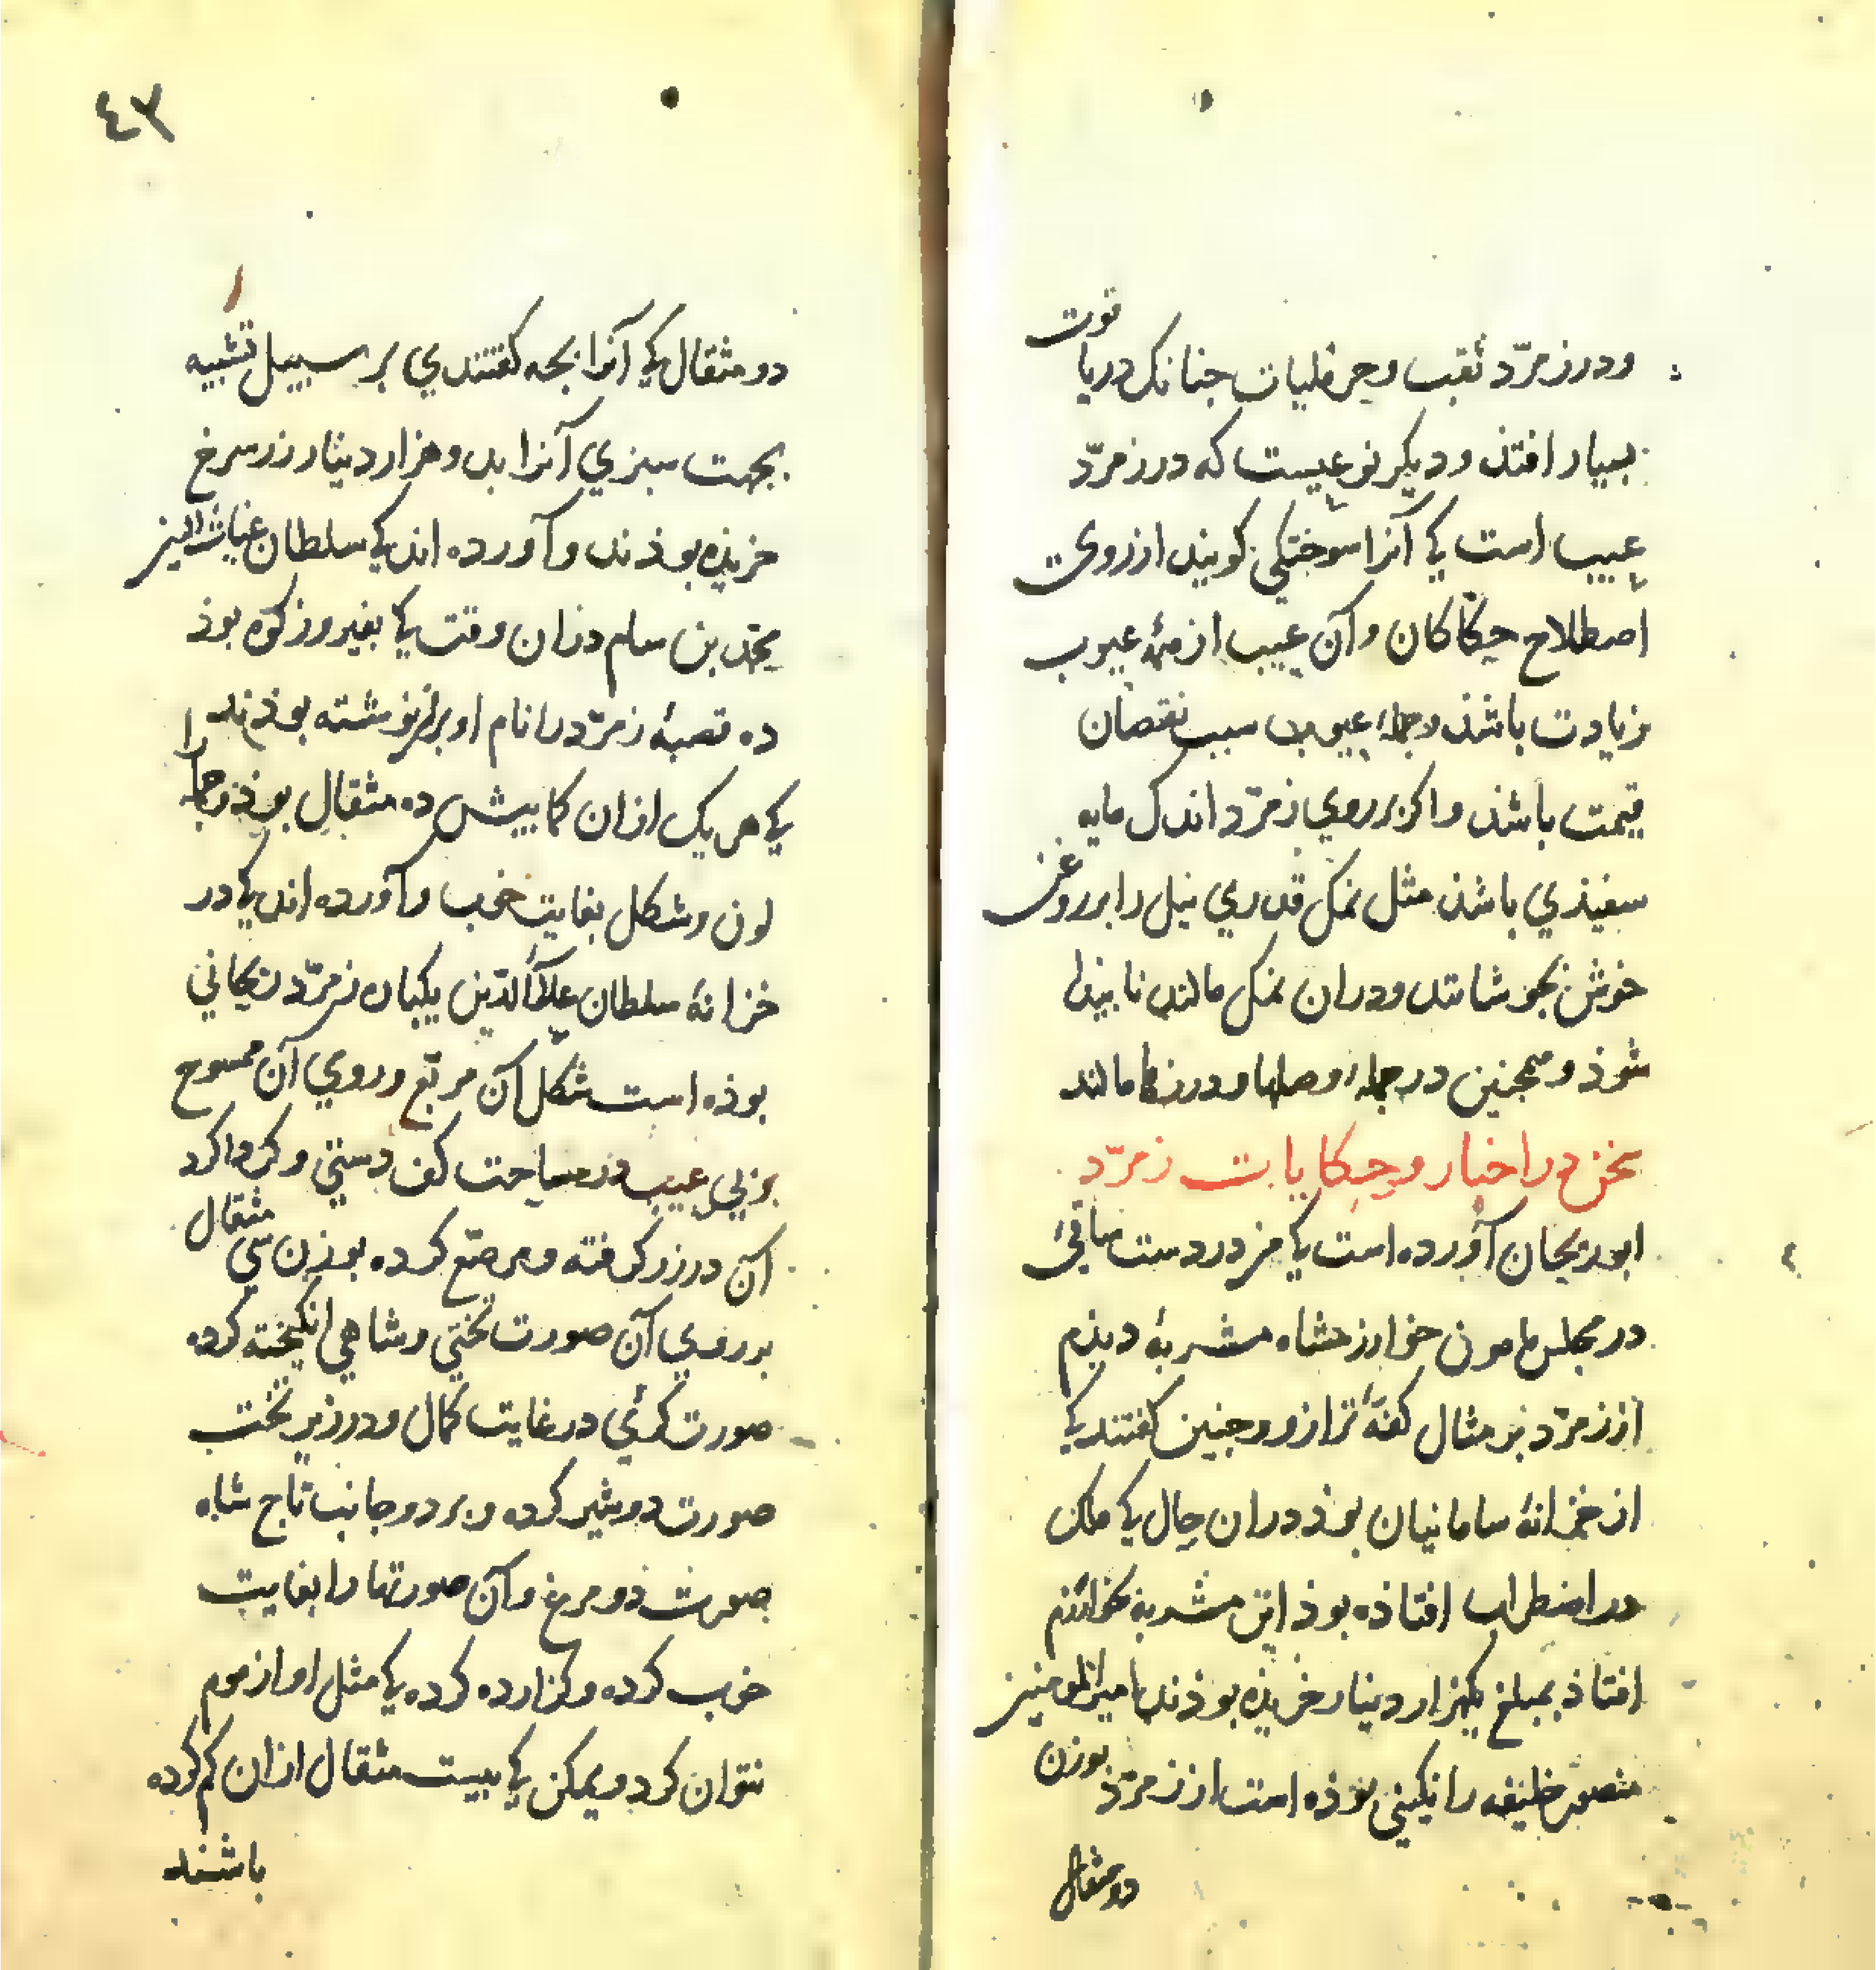 ودر زمرّد ثقب وحرملیات جنانک در یاقوت
بسیار افتذ ودیکر نوعیست که در زمرّد
عیب است کی آنرا سوختکی کویند از روی
اصطلاح حکاکان وآن عیب از همهٔ عیوب
زیادت باشذ وجملهٔ عیوب سبب نقصان
قیمت باشذ واکر بر روی زمرّد اندک مایه
سفیذی باشذ مثل نمک قدری نیل را بر روغن
خوش بجوشانند ودران نمک مالند نابیذا
شوذ وهمجنین در جملهٔ وصلها ودرزها مالند
سخن در اخبار وحکایات زمرّد
ابو ریحان آورده است کی من در دست ساقئ
در مجلس مامون خوارزمشاه مشربهٔ دیذم
از زمرّد بر مثال کفهٔ ترازو وجنین کفتند کی
از خزانهٔ سامانیان بوذ دران حال کی ملک
در اضطراب افتاذه بوذ این مشربه بخوارزم
افتاذ بمبلغ یکهزار دینار خریذه بوذند امیر المومنین
منصور خلیفه را نکینی بوذه است از زمرّذ بوزن
دو مثقال
٤٣
دو مثقال کی آنرا بجه کفتندی بر سبیل تشبیه
بجهت سبزی آنرا بدو هزار دینار زر سرخ
خریذه بوذند وآورده اند کی سلطان غیاث الدین
محمد بن سام دران وقت کی بفیروز کوه بوذ
ده قصبهٔ زمرّد را نام او بران نوشته بوذند
کی هر یک ازان کمابیش ده مثقال بوذ وجمله را
لون وشکل بغایت خوب وآورده اند کی در
خزانهٔ سلطان علاء الدّین یکباره زمرّد ریحانی
بوذه است شکل آن مربّع وروی آن ممسوح
وبی عیب در مساحت کف دستی وکرداکرد
آن در زر کرفته ومرصّع کرده بوزن سی مثقال
بر روی آن صورت تختی وشاهی انکیخته کرده
صورت کرئی در غایت کمال ودر زیر تخت
صورت دو شیر کرده وبر دو جانب تاج شاه
صورت دو مرغ وآن صورتها را بغایت
خوب کرده وکزارده کرده کی مثل او از موم
نتوان کرد ویمکن کی بیست مثقال ازان کم کرده
باشند